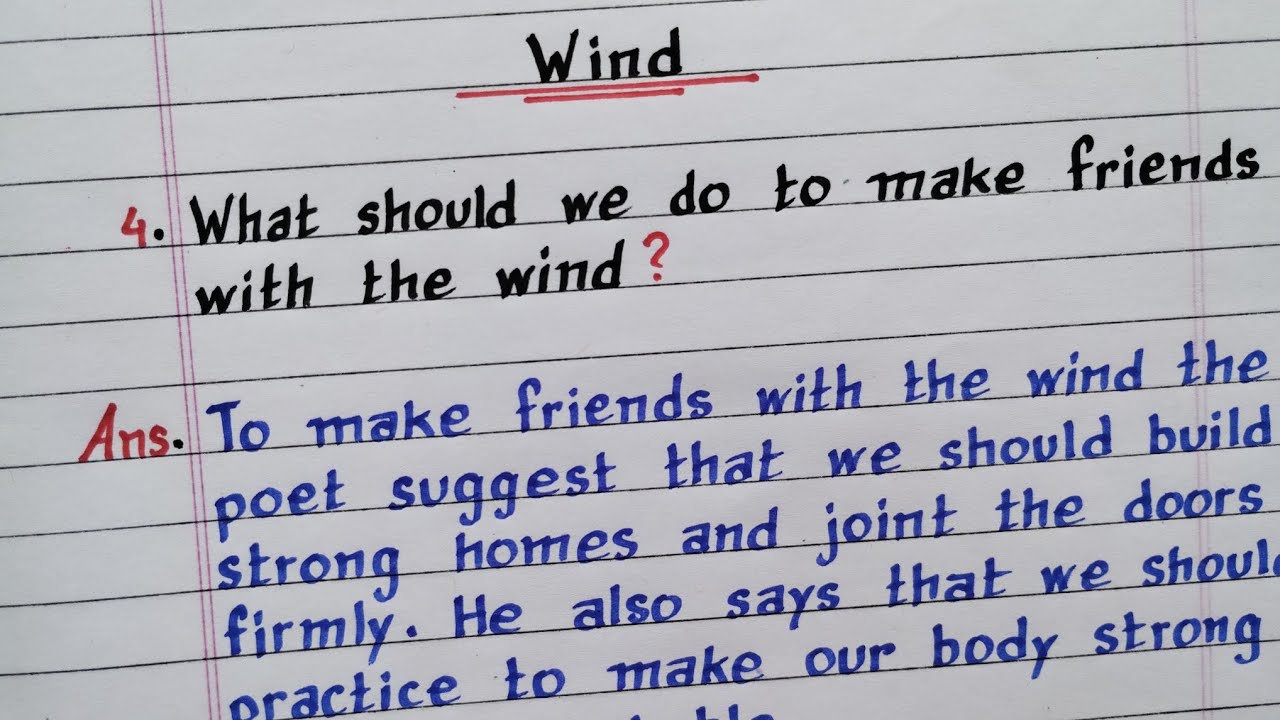 Wind
4. What should we do to make friends
with the wind?
Ans. To make friends with the wind the
poet suggest that we should build
strong homes and joint the doors
firmly. He also says that we should
practice to make our body strong